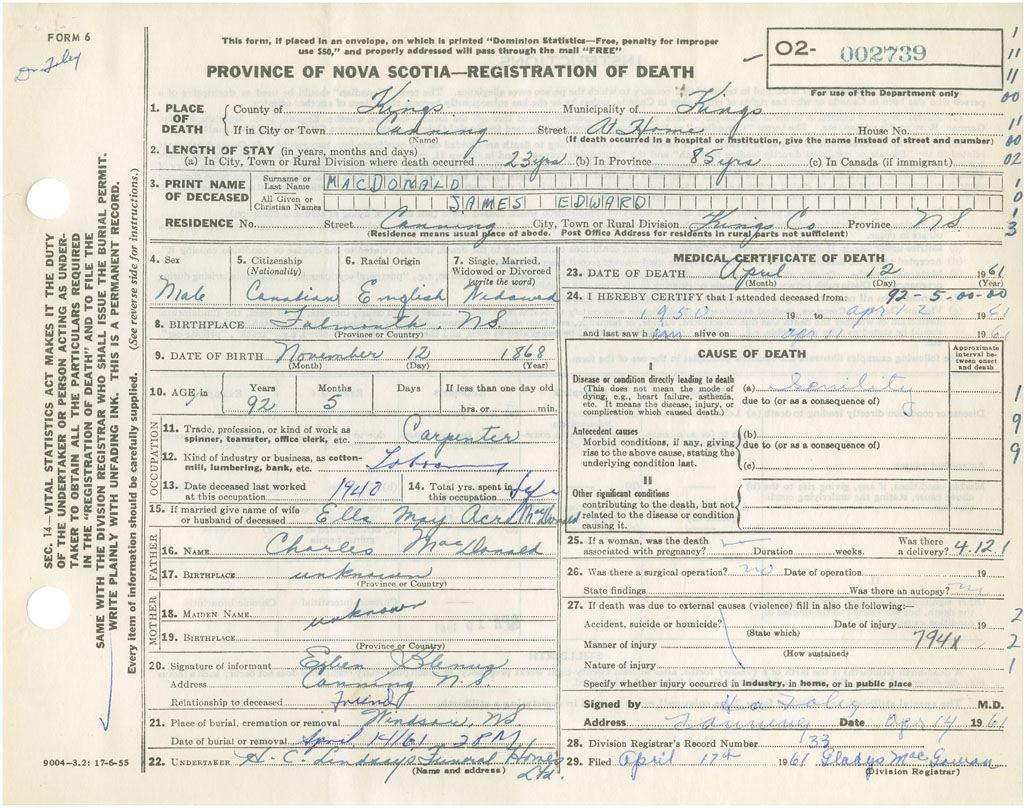 FORM 6
Dr Foley
This form, if placed in an envelope, on which is printed "Dominion Statistics—Free, penalty for improper
use $50," and properly addressed will pass through the mail "FREE"
PROVINCE OF NOVA SCOTIA—REGISTRATION OF DEATH
O2- 002739
For use of the Department only
SEC. 14—VITAL STATISTICS ACT MAKES IT THE DUTY
OF THE UNDERTAKER OR PERSON ACTING AS UNDER-
TAKER TO OBTAIN ALL THE PARTICULARS REQUIRED
IN THE "REGISTRATION OF DEATH" AND TO FILE THE
SAME WITH THE DIVISION REGISTRAR WHO SHALL ISSUE THE BURIAL PERMIT.
WRITE PLAINLY WITH UNFADING INK. THIS IS A PERMANENT RECORD.
Every item of information should be carefully supplied. (See reverse side for instructions.)
1. PLACE OF DEATH County of Kings Municipality of Kings
If in City or Town Canning Street At Home House No.
(Name) (If death occurred in a hospital or institution, give the name instead of street and number)
2. LENGTH OF STAY (in years, months and days)
(a) In City, Town or Rural Division where death occurred 23 yrs (b) In Province 85 yrs (c) In Canada (if immigrant)
3. PRINT NAME OF DECEASED Surname or Last Name MACDONALD
All Given or Christian Names JAMES EDWARD
RESIDENCE No. Street Canning City, Town or Rural Division Kings Co Province NS
(Residence means usual place of abode. Post Office Address for residents in rural parts not sufficient)
4. Sex Male
5. Citizenship (Nationality) Canadian
6. Racial Origin English
7. Single, Married, Widowed or Divorced (write the word) Widowed
8. BIRTHPLACE Falmouth, NS.
(Province or Country)
9. DATE OF BIRTH November 12 1868
(Month) (Day) (Year)
10. AGE in Years 92 Months 5 Days If less than one day old hrs. or min.
OCCUPATION
11. Trade, profession, or kind of work as spinner, teamster, office clerk, etc. Carpenter
12. Kind of industry or business, as cotton-mill, lumbering, bank, etc.
13. Date deceased last worked at this occupation 1940 14. Total yrs. spent in this occupation Life
15. If married give name of wife or husband of deceased Ella May MacDonald
FATHER
16. NAME Charles MacDonald
17. BIRTHPLACE unknown
(Province or Country)
MOTHER
18. MAIDEN NAME unknown
19. BIRTHPLACE
(Province or Country)
20. Signature of informant
Address Canning N.S
Relationship to deceased Friend
21. Place of burial, cremation or removal Windsor, NS
Date of burial or removal April 14/61 2 PM
22. UNDERTAKER H. C. Lindsays Funeral Home Ltd.
(Name and address)
9004-3.2: 17-6-55
MEDICAL CERTIFICATE OF DEATH
23. DATE OF DEATH April 12 1961
(Month) (Day) (Year)
24. I HEREBY CERTIFY that I attended deceased from: 92-5-00-00
1950 19 to apr 12 1961
and last saw him alive on apr 11 1961
CAUSE OF DEATH
Approximate interval between onset and death
I
Disease or condition directly leading to death (a) Senility
(This does not mean the mode of dying, e.g., heart failure, asthenia, etc. It means the disease, injury, or complication which caused death.) due to (or as a consequence of)
Antecedent causes (b)
Morbid conditions, if any, giving rise to the above cause, stating the underlying condition last. due to (or as a consequence of)
(c)
II
Other significant conditions
contributing to the death, but not related to the disease or condition causing it.
25. If a woman, was the death associated with pregnancy? Duration weeks. Was there a delivery? 4.12.1
26. Was there a surgical operation? no Date of operation 19
State findings Was there an autopsy? no
27. If death was due to external causes (violence) fill in also the following:—
Accident, suicide or homicide? Date of injury 19
(State which)
Manner of injury 794X
(How sustained)
Nature of injury
Specify whether injury occurred in industry, in home, or in public place
Signed by M.D.
Address Canning Date Apr 14 1961
28. Division Registrar's Record Number 33
29. Filed April 17th 1961 Gladys MacGowan
(Division Registrar)
1
11
11
00
11
00
02
1
0
1
3
1
9
9
2
2
1